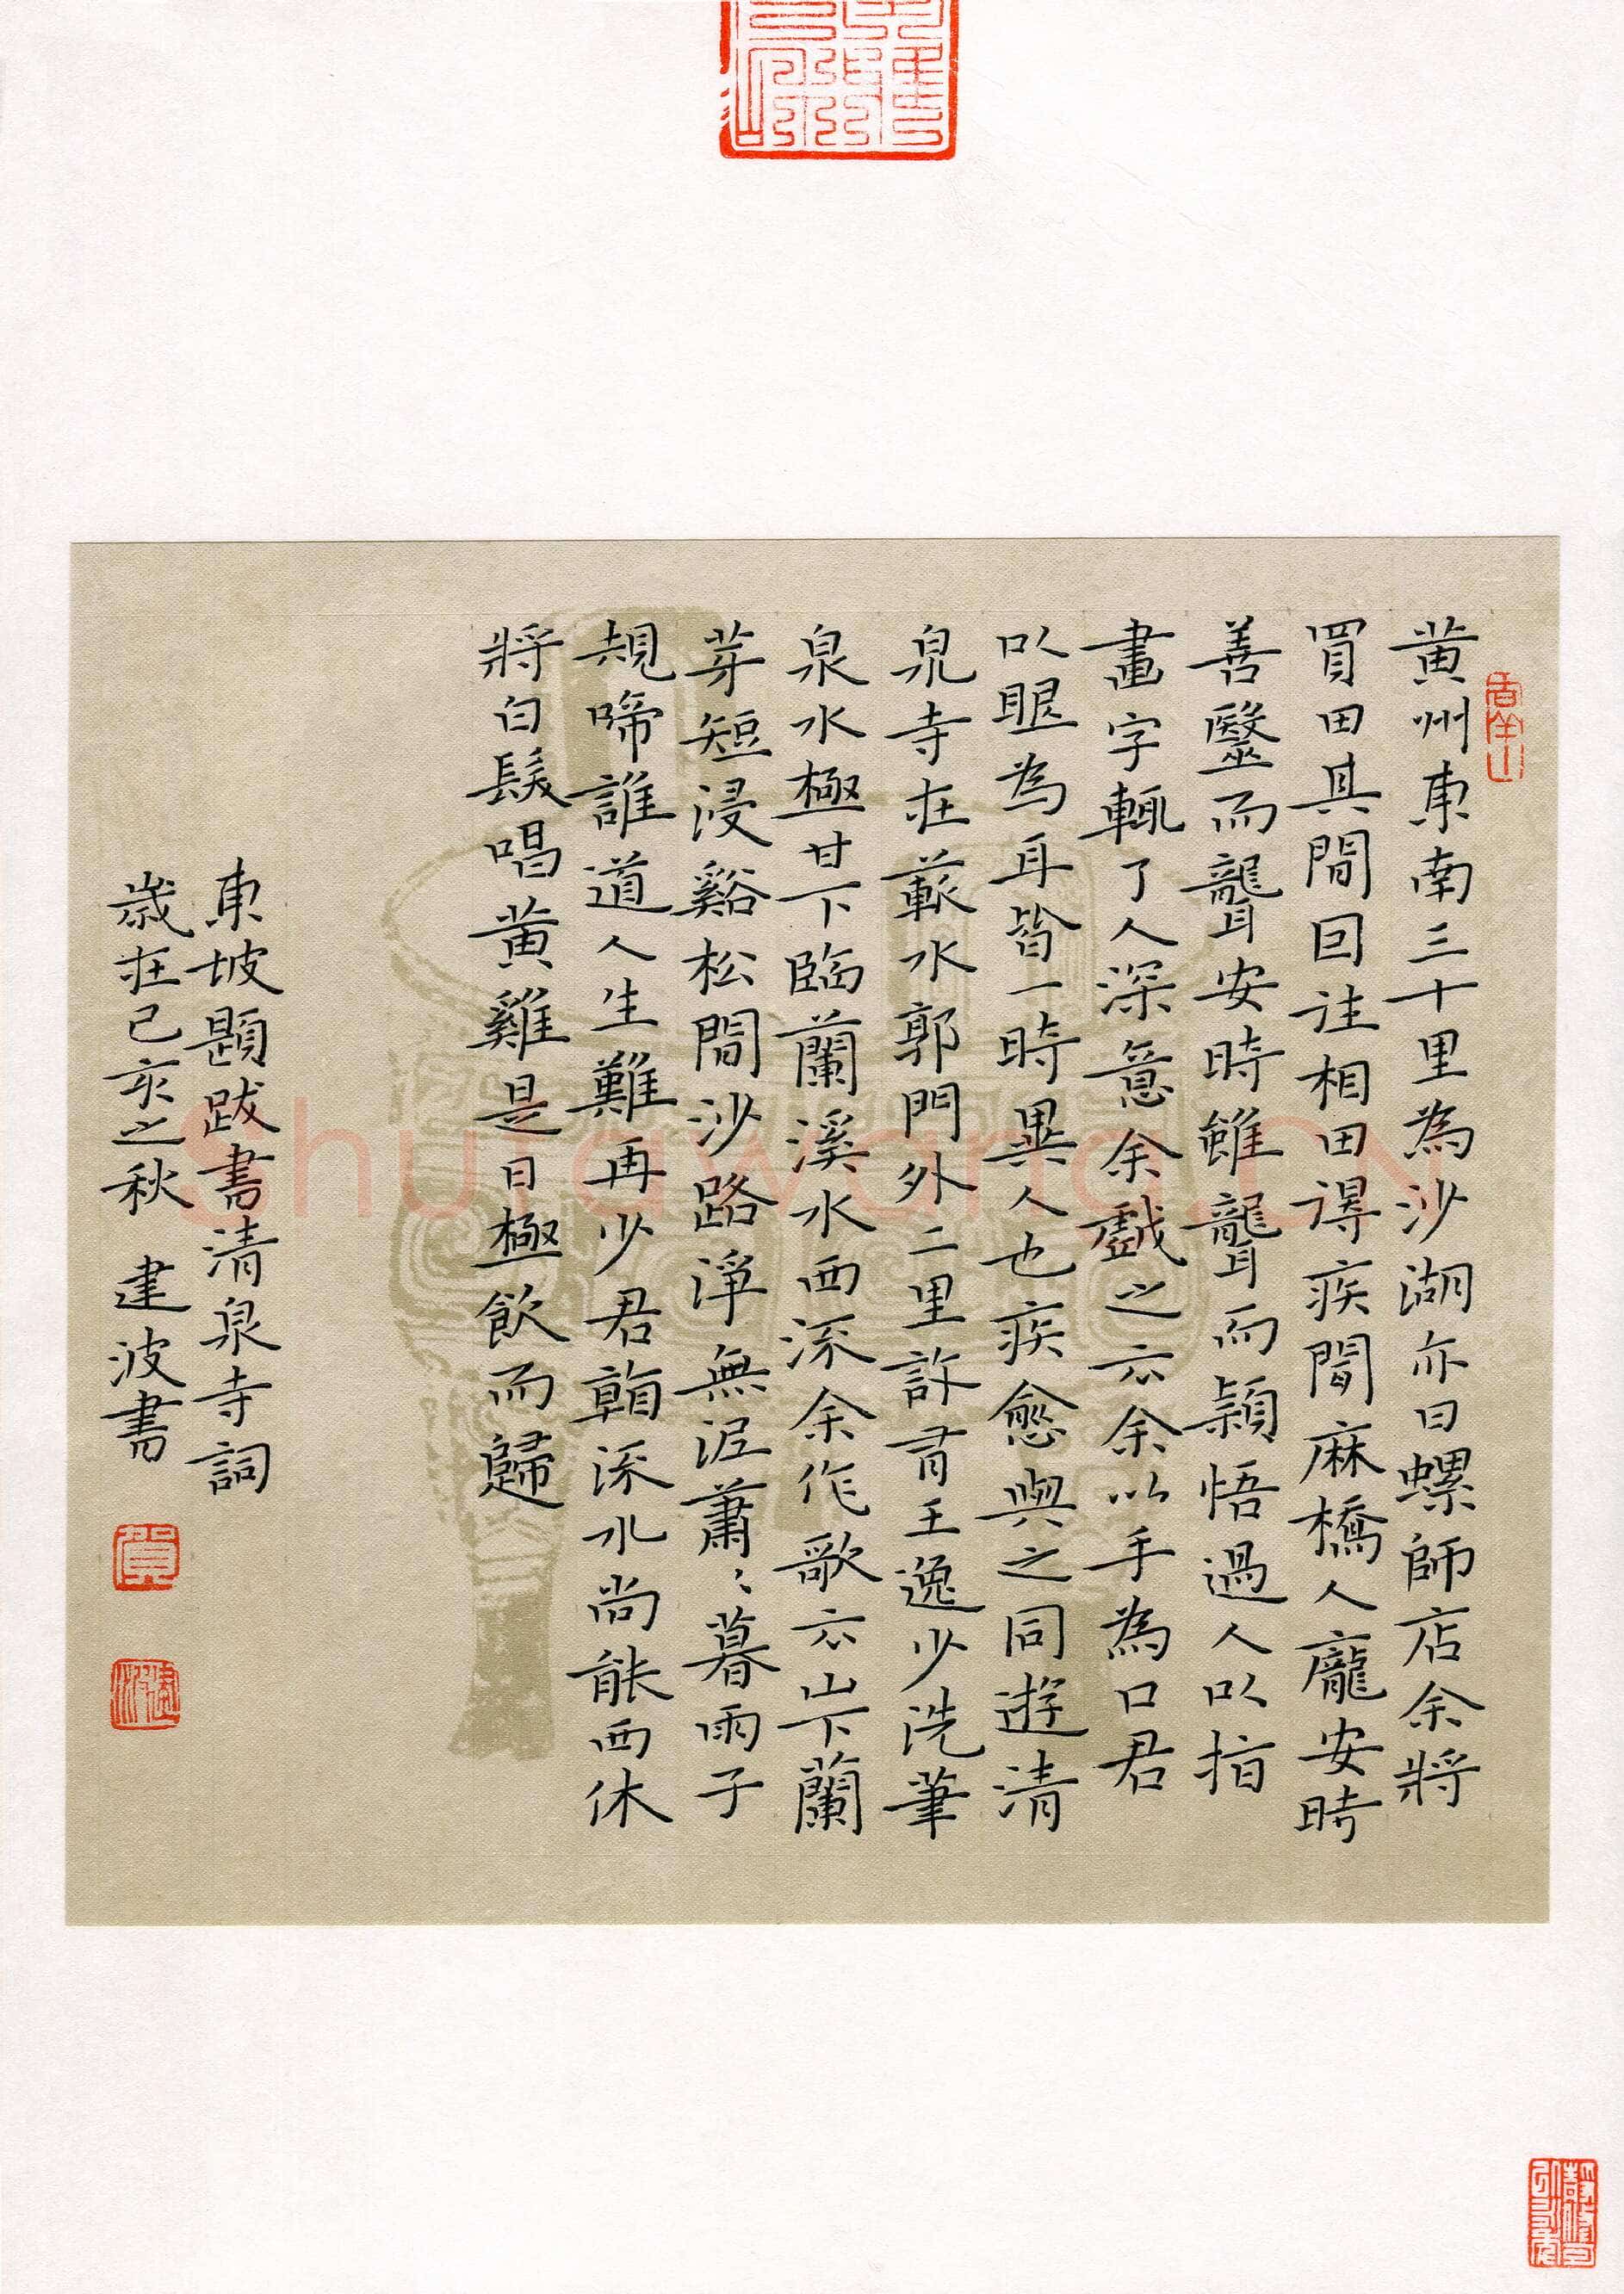 黄州東南三十里為沙湖亦曰螺師店余將
買田其間回詿相田得疾聞麻橋人龐安時
善毉而聾安時雖聾而穎悟過人以指
畫字輒了人深意余戲之云余以手為口君
以眼為耳皆一時異人也疾愈與之同遊清
泉寺在蘄水郭門外二里許有王逸少洗筆
泉水極甘下臨蘭溪水西流余作歌云山下蘭
芽短浸谿松間沙路淨無泥蕭〻暮雨子
規啼誰道人生難再少君看流水尚能西休
將白髮唱黄雞是日極飲而歸
東坡題跋書清泉寺詞
歲在己亥之秋 建波書
賀
建波